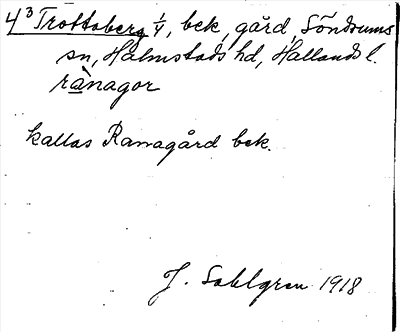 4³ Trottaberg 1/4, bek, gård, Söndrums
sn, Halmstads hd, Hallands l.
rànagor
kallas Ranagård bek.
J. Sahlgren 1918